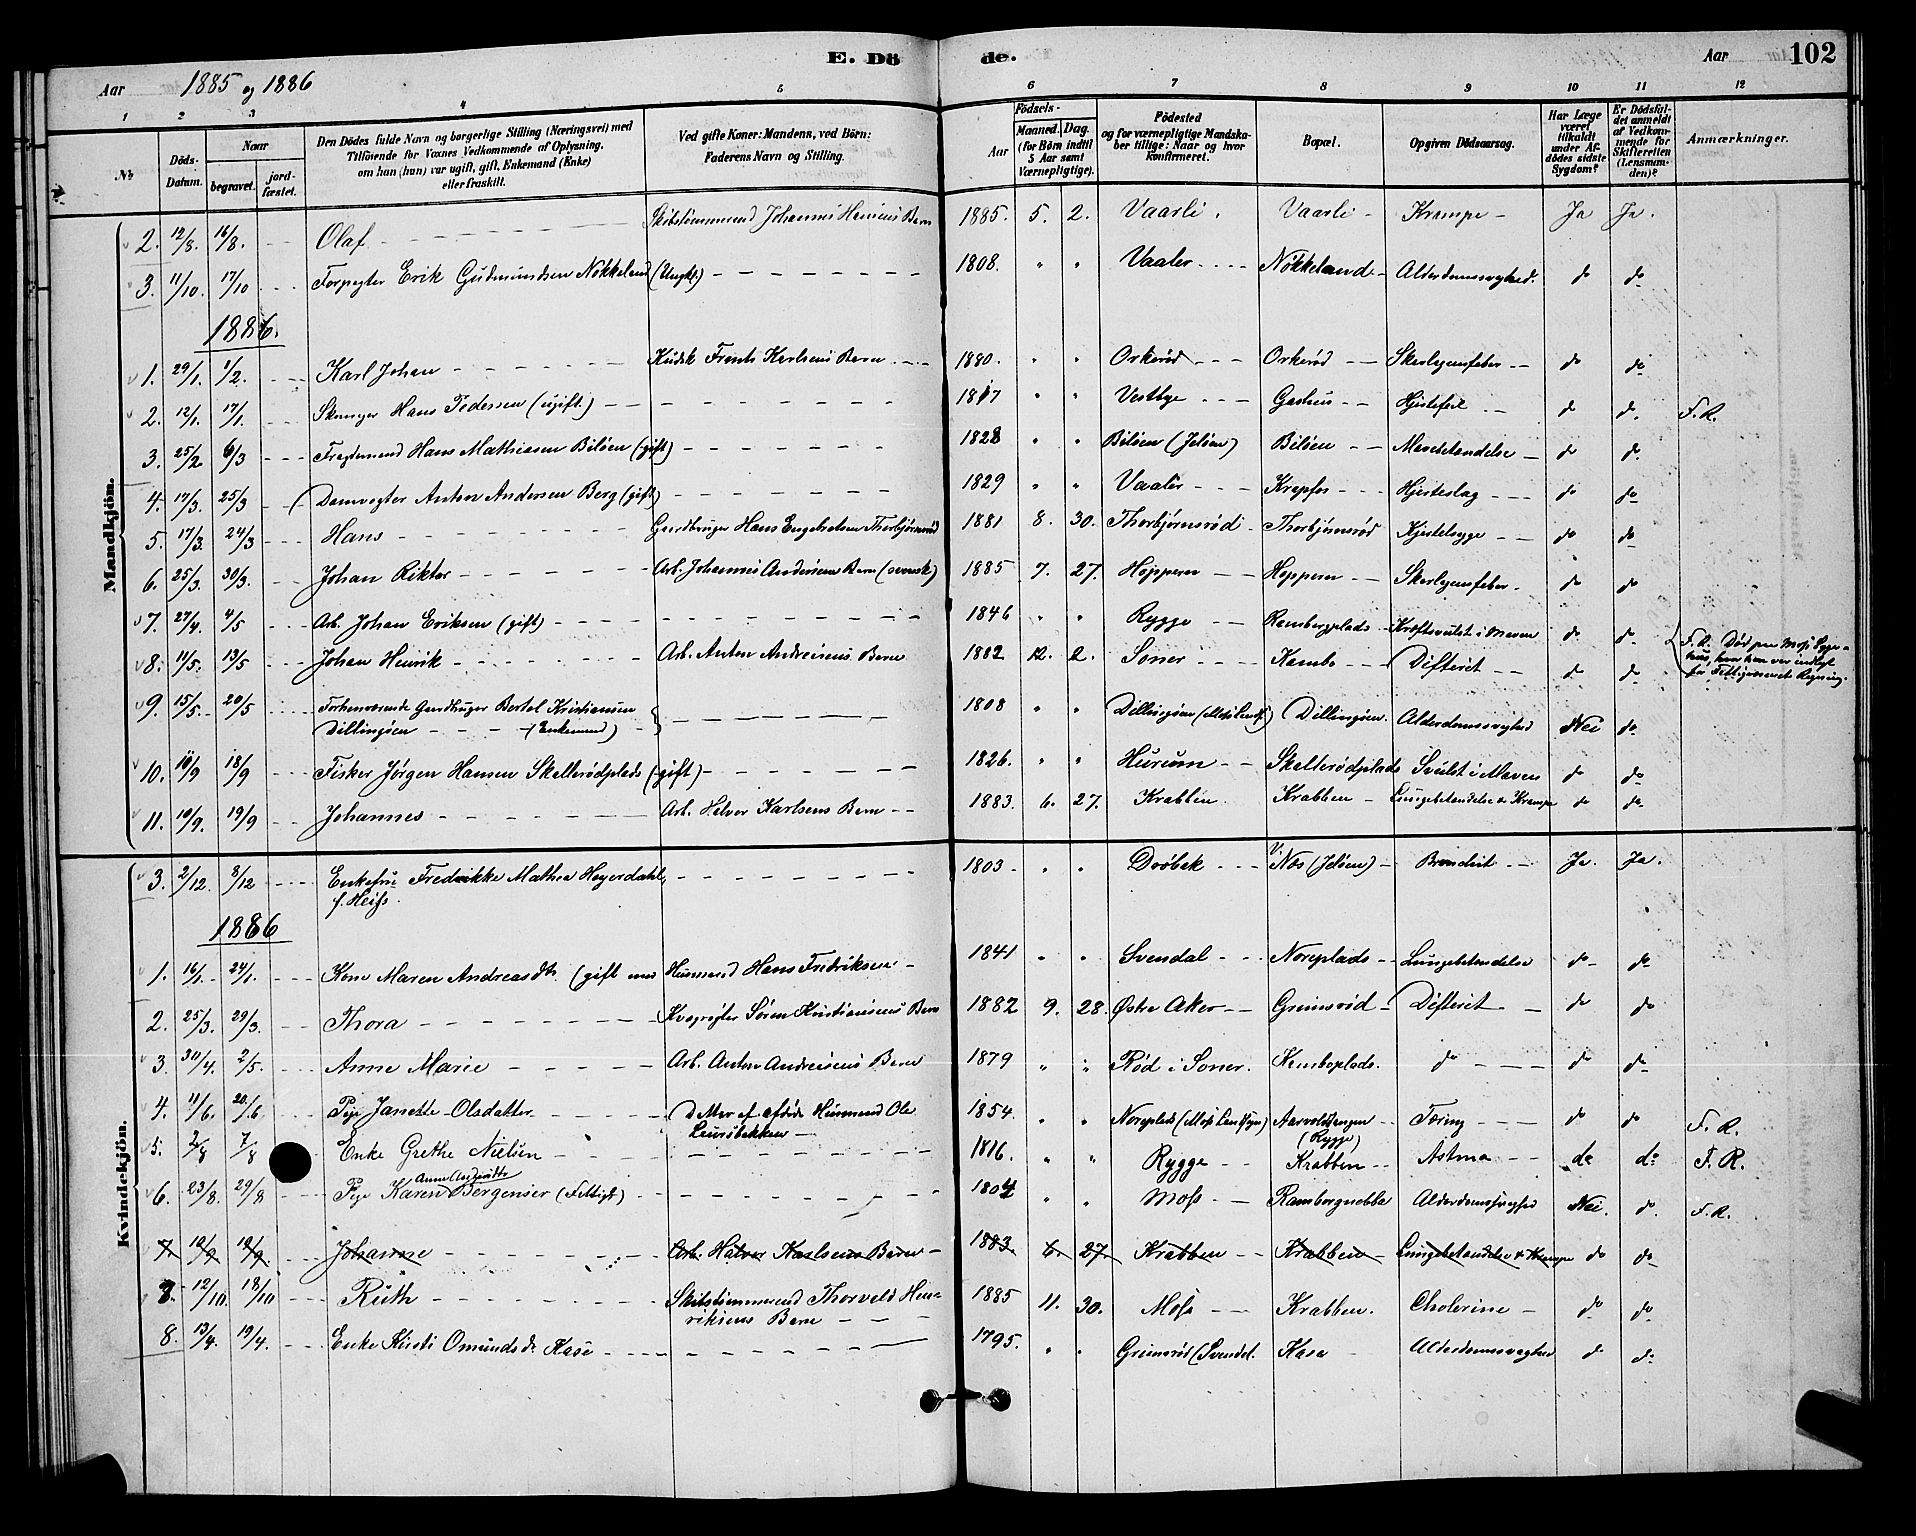 E. Dö de.
Aar 1885 og 1886
Aar 102
1 2 3 4 5 6 7 8 9 10 11 12
№
Döds-Datum.
Naar
begravet. jordfæstet.
Den Dödes fulde Navn og borgerlige Stilling (Næringsvei) med Tilföiende for Voxnes Vedkommende af Oplysning, om han (hun) var ugift, gift, Enkemand (Enke) eller fraskilt.
Ved gifte Koner: Mandens, ved Börn: Faderens Navn og Stilling.
Födsels-
Aar Maaned. Dag.
(for Börn indtil 5 Aar samt Værnepligtige).
Födested og for værnepligtige Mandskaber tillige: Naar og hvor konfirmeret.
Bopæl.
Opgiven Dödsaarsag.
Har Læge været tilkaldt under Afdödes sidste Sygdom?
Er Dödsfaldet anmeldt af Vedkommende for Skifteretten (Lensmanden)?
Anmærkninger.
Mandkjön.
2. 12/8. 16/8. Olaf Skibstömmermand Johannes Barn 1885. 5. 2. Vaarli. Vaarli Krampe Ja Ja.
3. 11/10. 17/10 Forpagter Erik Gudmundsen Nökkeland (Ungk.) 1808. " " Vaaler Nökkeland Alderdomssvaghed. do do
1886.
1. 29/1. 1/2. Karl Johan Kudsk Frants Karlsens Barn 1880. " " Orkeröd Orkeröd Skarlagensfeber do do
2. 12/1. 17/1. Hans Pedersen (ugift.) 1817 " " Vestbye Hjertefeil do do. F. R.
3. 25/2. 6/3 Fragtemand Hans Mathiasen Bilöen (gift) 1828 " " Bilöen (Jelöen) Bilöen Mavebetændelse do do.
4. 17/3. 25/3 Damvogter Anton Andersen Berg (gift) 1829 " " Vaaler Krapfos Hjerteslag do do
5. 17/3. 24/3 Hans Gaardbruger Hans Engebretsen Thorbjörnsröd 1881 8. 30. Thorbjörnsröd Thorbjörnsröd Kjertelsyge do do
6. 25/3. 30/3. Johan Rikter Arb. Johannes Andersens Barn (svensk) 1885 7. 27. Hoppern Hoppern Skarlagensfeber do do
7. 27/4. 4/5 Arb. Johan Eriksen (gift) 1846 " " Rygge Rambergplads Kræftsvulst i Maven do do.
8. 11/5. 13/5 Johan Henrik Arb. Anton Andreasens Barn 1882 12. 2. Soner Kambo Difterit do do.
F. R. Död paa Moss Syge-
hus, hvor han var indlagt
for Fattigvæsenets Regning.
9. 15/5. 20/5 Forhenværende Gaardbruger Bertel Kristiansen 1808 " " Dillingöen (Moss Landsogn) Dillingöen. Alderdomssvaghed Nei do
Dillingöen (Enkemand)
10. 10/9 18/9 Fisker Jörgen Hansen Skallerödplads (gift) 1826. " " Hurum Skallerödplads Svulst i Maven do do
11. 10/9. 19/9 Johannes Arb. Halvor Karlsens Barn 1883. 6. 27. Krabben. Krabben Lungebetændelse & Krampe do do
Kvindekjön.
3. 2/12. 8/12 Enkefru Fredrikke Mathea Heyerdahl, 1803 " " Dröbak V. Nös (Jelöen) Ja. Ja.
f. Heifs.
1886
1. 16/1. 24/1. Kone Maren Andreasdtr. (gift med Husmand Hans Fredriksen 1841 " " Svendal Noreplads Lungebetændelse do do
2. 25/3. 29/3. Thora Kvægrögter Sören Kristiansens Barn 1882 9. 28. Östre Aker Grimsröd Difterit do do
3. 30/4. 2/5. Anne Marie Arb. Anton Andreasens Barn 1879 " " Röd i Soner. Kamboplads. do do do
4. 11/6. 20/6 Pige Janette Olsdatter Datter af afdöde Husmand Ole 1854. " " Noreplads (Moss Landsogn) Aarvoldtangen Tæring do do F. R.
(Rygge)
5. 2/8 7/8 Enke Grethe Nielsen 1816. " " Rygge Krabben Astma do do F. R.
6. 23/8. 29/8 Pige Karen Anne Bergenser (Fattigl.) 1804 " " Moss Rambergnebba Alderdomssvaghed Nei. do. F. R.
7. 10/9 19/9. Johanne Arb. Halvor Karlsens Barn 1883. 6. 27. Krabben Krabben Lungebetændelse & Krampe do do
7. 12/10. 18/10 Ruth Skibstömmermand Thorvald Hen-
riksens Barn 1885 11. 30. Moss Krabben. Cholerine do do
8. 13/4. 19/4. Enke Kirsti Omundsdr. Kase 1795. " " Grimsröd (Svendal. Kasa Alderdomssvaghed do do